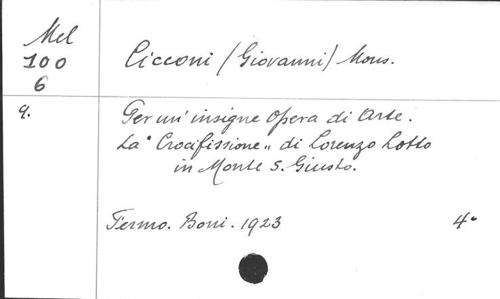 Mel
100
6
Cicconi (Giovanni) Mons.
9.
Per un' insigne Opera di Arte.
La "Crocifissione" di Lorenzo Lotto
in Monte S. Giusto.
Fermo. Boni. 1923
4°